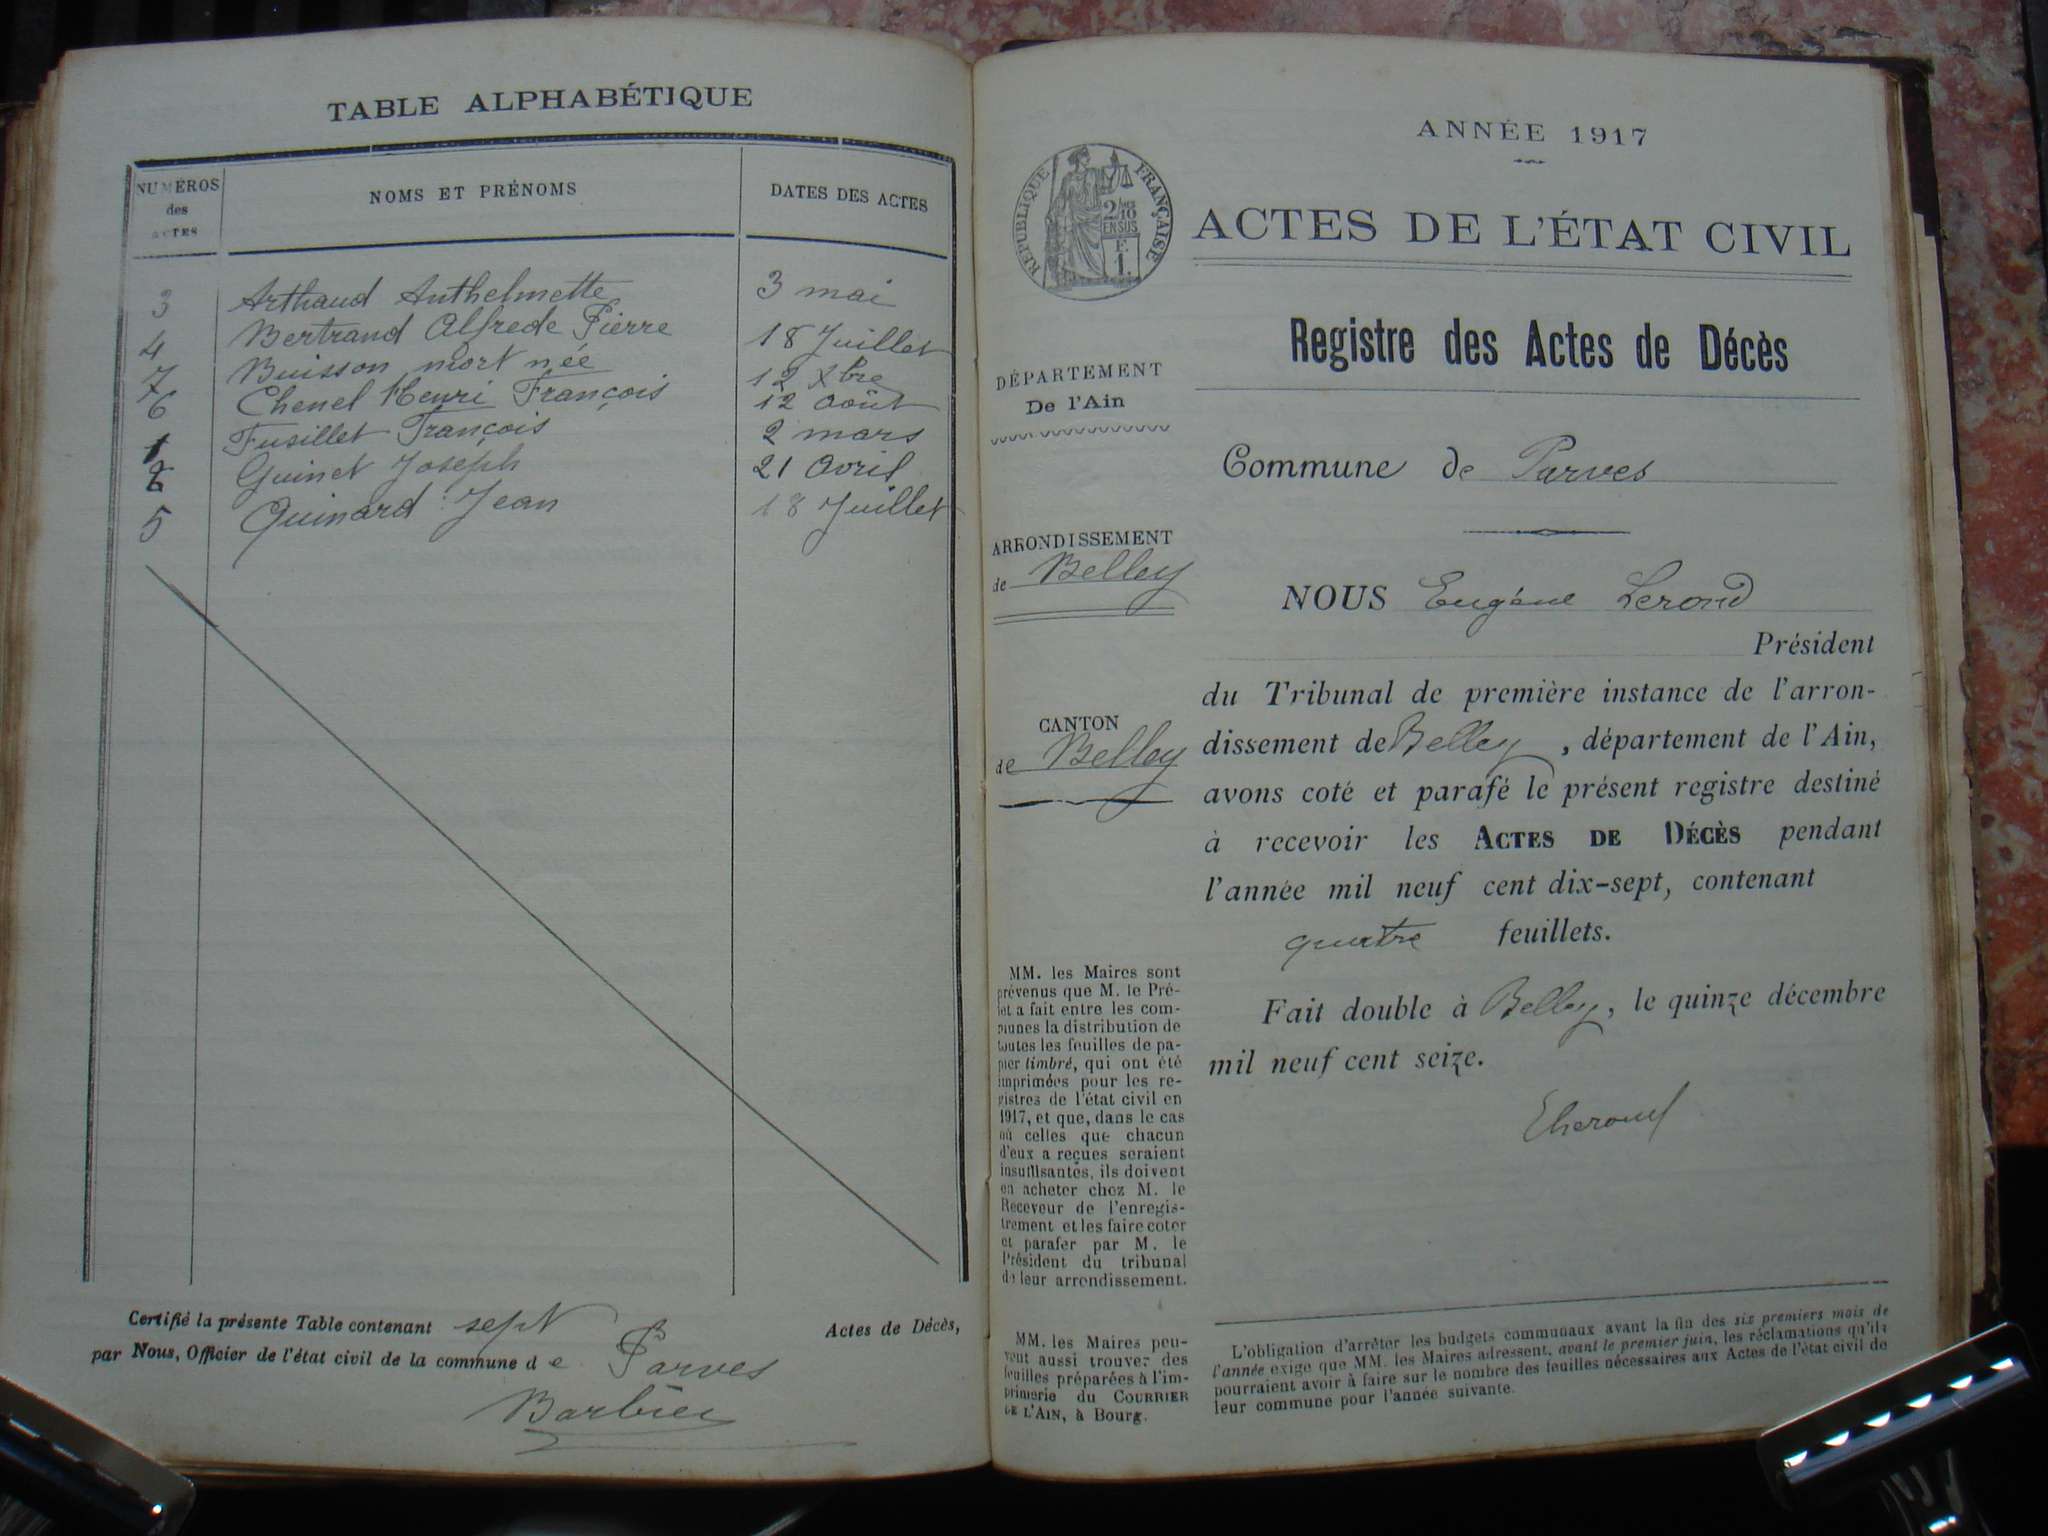 TABLE ALPHABÉTIQUE
NUMÉROS des ACTES NOMS ET PRÉNOMS DATES DES ACTES
3 Arthaud Anthelmette 3 mai
4 Bertrand Alfrede Pierre 18 Juillet
7 Buisson mort née 12 Xbre
6 Chenel Henri François 12 Août
1 Fusillet François 2 mars
2 Guinet Joseph 21 Avril
5 Quinard Jean 18 Juillet
Certifié la présente Table contenant sept Actes de Décès,
par Nous, Officier de l'état civil de la commune de Parves
Barbier
ANNÉE 1917
RÉPUBLIQUE FRANÇAISE
2/10
EN SUS
F.
1.
ACTES DE L'ÉTAT CIVIL
Registre des Actes de Décès
DÉPARTEMENT
De l'Ain
Commune de Parves
ARRONDISSEMENT
de Belley
NOUS Eugène Lerond
Président
CANTON
de Belley
du Tribunal de première instance de l'arron-
dissement de Belley, département de l'Ain,
avons coté et parafé le présent registre destiné
à recevoir les ACTES DE DÉCÈS pendant
l'année mil neuf cent dix-sept, contenant
quatre feuillets.
Fait double à Belley, le quinze décembre
mil neuf cent seize.
MM. les Maires sont
prévenus que M. le Pré-
fet a fait entre les com-
munes la distribution de
toutes les feuilles de pa-
pier timbré, qui ont été
imprimées pour les re-
gistres de l'état civil en
1917, et que, dans le cas
où celles que chacun
d'eux a reçues seraient
insuffisantes, ils doivent
en acheter chez M. le
Receveur de l'enregis-
trement et les faire coter
et parafer par M. le
Président du tribunal
de leur arrondissement.
MM. les Maires peu-
vent aussi trouver des
feuilles préparées à l'im-
primerie du COURRIER
DE L'AIN, à Bourg.
L'obligation d'arrêter les budgets communaux avant la fin des six premiers mois de
l'année exige que MM. les Maires adressent, avant le premier juin, les réclamations qu'ils
pourraient avoir à faire sur le nombre des feuilles nécessaires aux Actes de l'état civil de
leur commune pour l'année suivante.